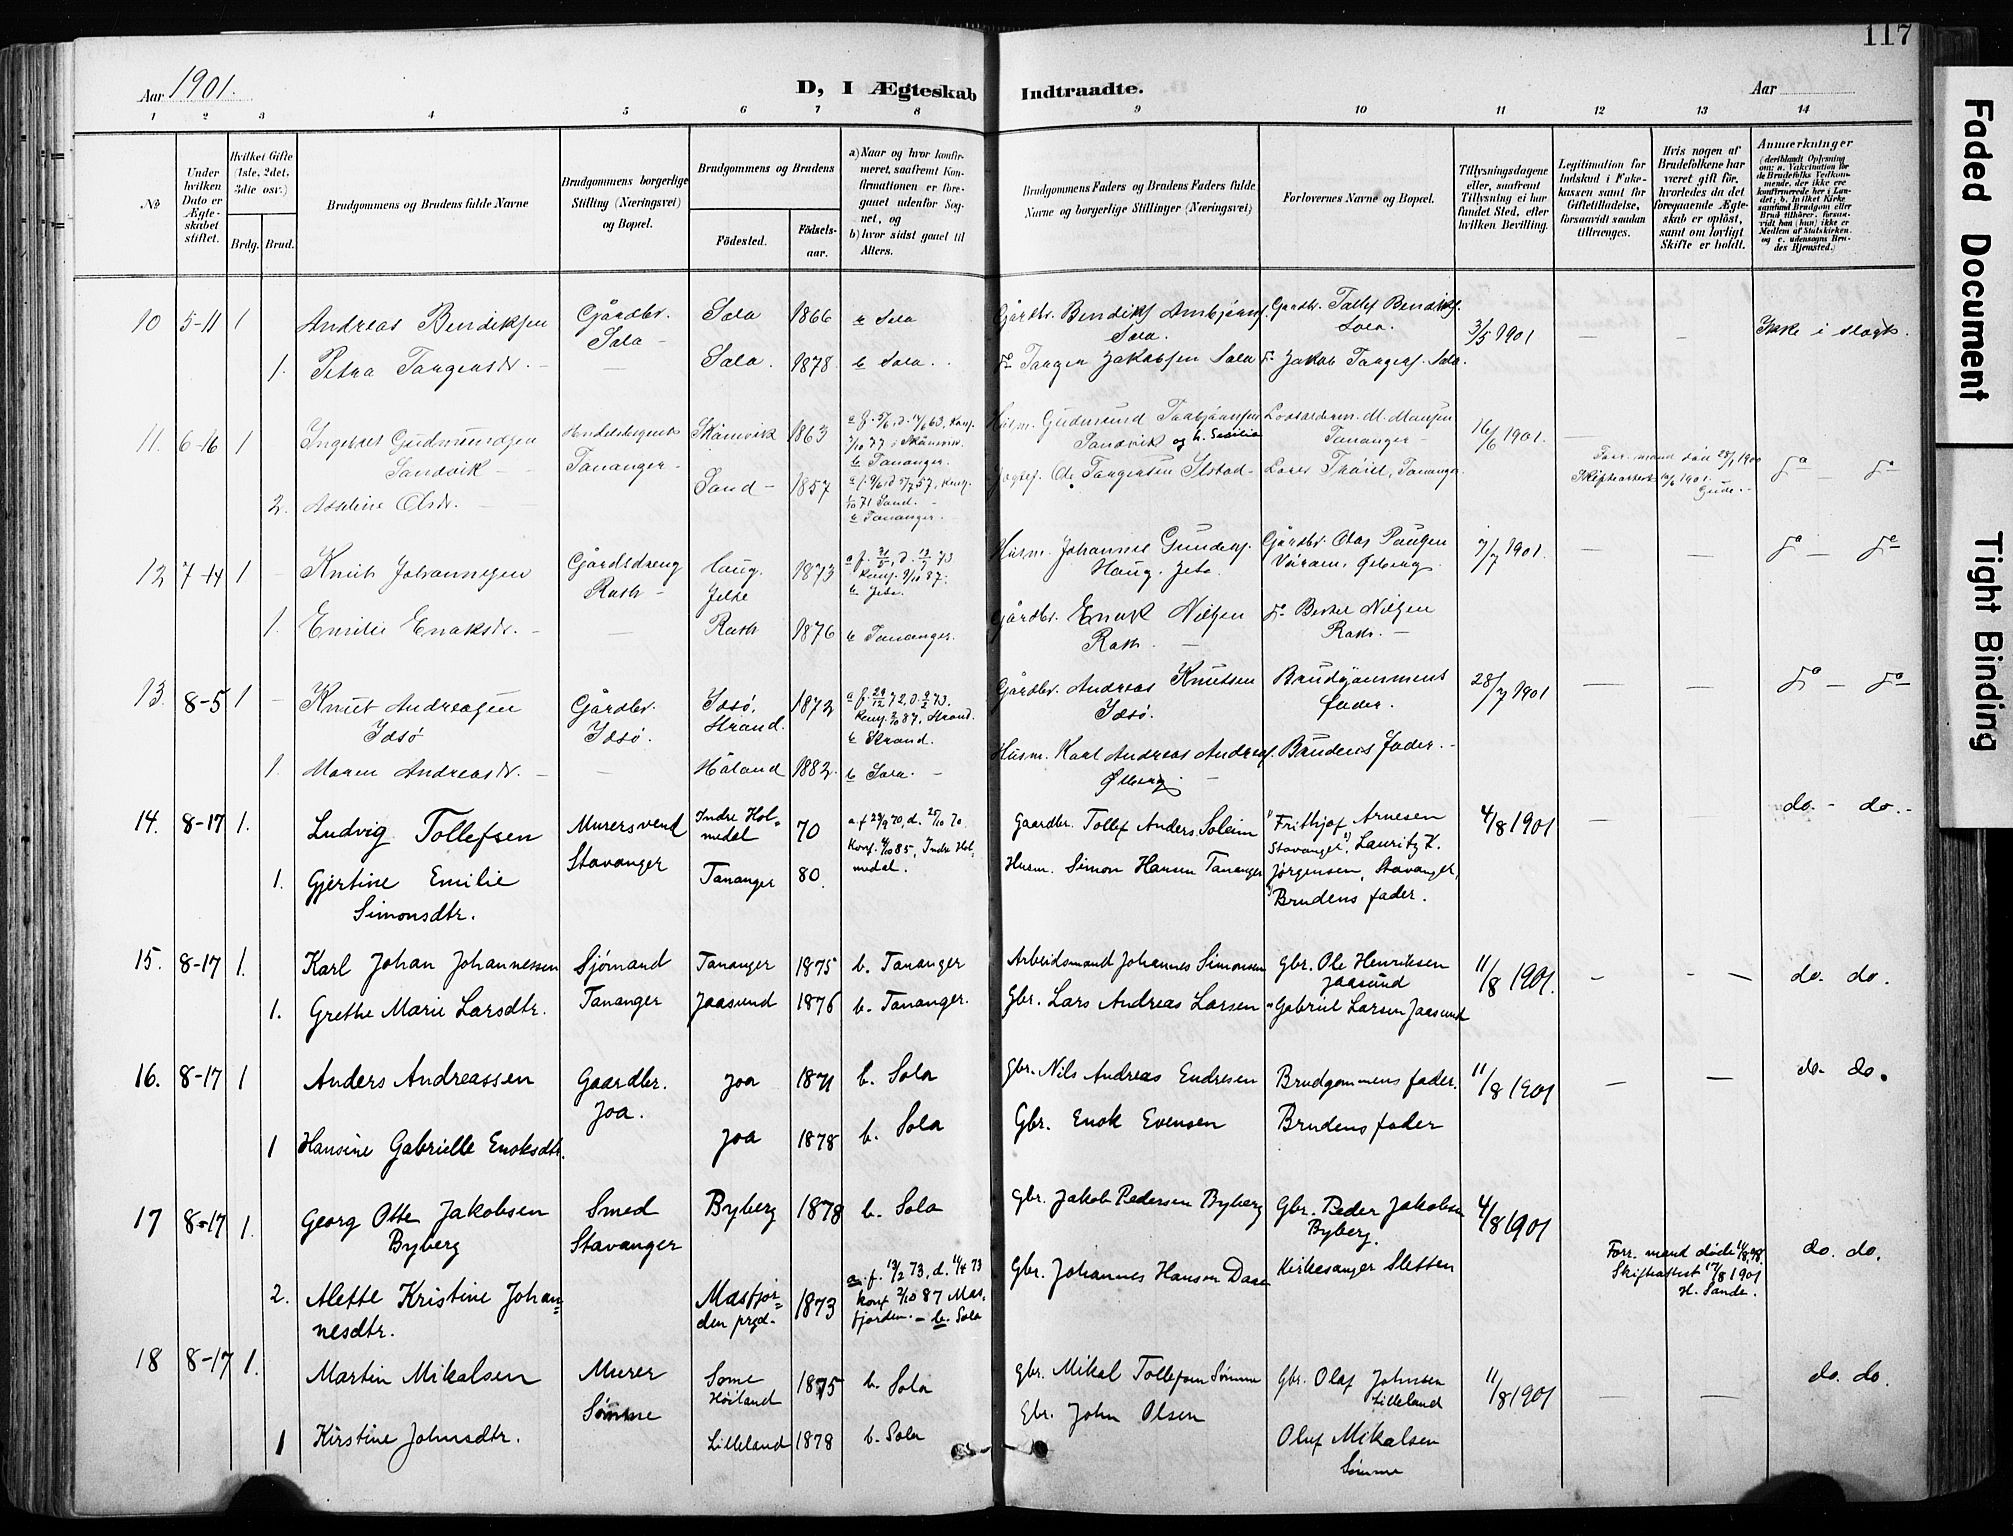 117
Aar 1901.
D, I Ægteskab Indtraadte.
Aar
1 2 3 4 5 6 7 8 9 10 11 12 13 14
No
Under hvilken Dato er Ægteskabet stiftet.
Hvilket Gifte (1ste, 2det, 3die osv.)
Brdg. Brud.
Brudgommens og Brudens fulde Navne
Brudgommens borgerlige Stilling (Næringsvei) og Bopæl.
Brudgommens og Brudens
Fødested.
Fødselsaar.
a) Naar og hvor konfirmeret, saafremt Konfirmationen er foregaaet udenfor Sognet, og
b) hvor sidst gaaet til Alters.
Brudgommens Faders og Brudens Faders fulde Navne og borgerlige Stillinger (Næringsvei)
Forlovernes Navne og Bopæl.
Tillysningsdagene eller, saafremt Tillysning ei har fundet Sted, efter hvilken Bevilling.
Legitimation for Indskud i Enkekassen samt for Giftetilladelse, forsaavidt saadan tiltrænges.
Hvis nogen af Brudefolkene har været gift før, hvorledes da det foregaaende Ægteskab er opløst, samt om lovligt Skifte er holdt.
Anmærkninger
(deriblandt Oplysning om: a. Vakcination for de Brudefolks Vedkommende, der ikke ere konfirmerede her i Landet; b. In hvilket Kirkesamfund Brudgom eller Brud tilhører, forsaavidt han (hun) ikke er Medlem af Statskirken, og c. udensogns Brudes Hjemsted.)
10 5-11 1 Andreas Bendiksen Gårdbr. Sola 1866 b Sola Gårdbr. Bendik Ambjørns. Gårdbr. Tollef Bendiks. 3/5 1901 — — Ikke i slægt.
Sola — Sola. Sola.
1. Petra Tangensdr. — — Sola. 1878. b Sola. Do Tangen Jakobsen Sola Do Jakob Tangens. Sola.
11. 6-16 1 Ingebret Gudmundsen Handelsbegent Skånevik 1863 Husm. Gudmund Taabjørnsen Lodsolderm. M. Monsen 16/6 1901. —
Sandvik — Tananger — 7/10 77 i Skånev. b Tananger. Sandvik og h. Tananger —
2. Asseline Olsdr. — Sand — 1857 1/10 71 Sand. b Tananger. Ole Tangensen Ilstad — Tananger. Forr. mand død 28/1 1900 Skifteattest 10/6 1901. Gude. Do — Do
12 7-14 1 Knut Johannesen Gårdsdreng Haug. 1873 a f. 31/5, d. 13/7 73 Husm. Johannes Gunders. Gårdbr. Olas Paulsen 7/7 1901. — — Do — Do
Rath — Jelse Konf. 9/10 87. b Jelse. Haug. Jelse.
1. Emilie Enoksdr. — — Rath 1876 b Tananger. Gårdbr. Enok Nilsen Do Bertel Nilsen
Rath. — Rath. —
13. 8-5 1 Knut Andreasen Gårdbr. Idsø, 1872 a f. 29/12 72, d. 9/2 73. Gårdbr. Andreas Knutsen Brudgommens 28/7 1901 — — Do — Do
Idsø Idsø. Strand. Konf. 2/10 87, Strand. b Strand. Idsø. fader.
1. Maren Andreasdr. — — Håland 1882. b Sola. — Husm. Karl Andreas Andreas. Brudens fader. —
Ølberg —
14. 8-17 1. Ludvig Tollefsen Murersvend Indre Holmedal 70 a. f 29/9 70, d. 25/10 70 Gaardbr. Tollef Anders. Soleim 1) Frithjof Arnesen 4/8 1901 — — do. - do. -
Stavanger Konf. 4/10 85, Indre Holmedal. Stavanger, 2) Lauritz K. Jørgensen, Stavanger,
1. Gjertine Emilie Simonsdtr. Tananger 80. Husm. Simon Hansen Tananger 3) Brudens fader.
15. 8-17 1. Karl Johan Johannessen Sjømand Tananger 1875 b. Tananger Arbeidsmand Johannes Simonsen Gbr. Ole Henriksen Jaasund 11/8 1901. — — do. do.
1. Grethe Marie Larsdtr. Tananger Jaasund 1876 b. Tananger. Gbr. Lars Andreas Larsen " Gabriel Larsen Jaasund
16. 8-17 1 Anders Andreassen Gaardbr. Joa 1871 b. Sola Gbr. Nils Andreas Endresen Brudgommens fader. 11/8 1901 — — do. do.
Joa.
1 Hansine Gabrielle Enoksdtr. Joa 1878 b. Sola Gbr. Enok Evensen Brudens fader
17 8-17 1. Georg Otto Jakobsen Smed Byberg 1878 b. Sola Gbr. Jakob Pedersen Byberg Gbr. Peder Jakobsen 4/8 1901
Byberg Stavanger Byberg.
2. Alette Kristine Johannesdtr. Masfjorden prgd. 1873 a. f. 19/2 73, d. 14/4 73 konf 2/10 87 Masfjorden. — b. Sola Gbr. Johannes Hansen Daae Kirkesanger Sletten Forr. mand døde 11/8 98. Skifteattest 17/8 1901 H. Sande. do. do.
18 8-17 1. Martin Mikalsen Murer Sømme Høiland 1875 b. Sola Gbr. Mikal Tollefsen Sømme Gbr. Olaf Johnsen Lilleland 11/8 1901 — — do. do.
Sømme
1 Kirstine Johnsdtr. Lilleland 1878 b. Sola Gbr. John Olsen Oluf Mikalsen
Sømme
Faded Document
Tight Binding